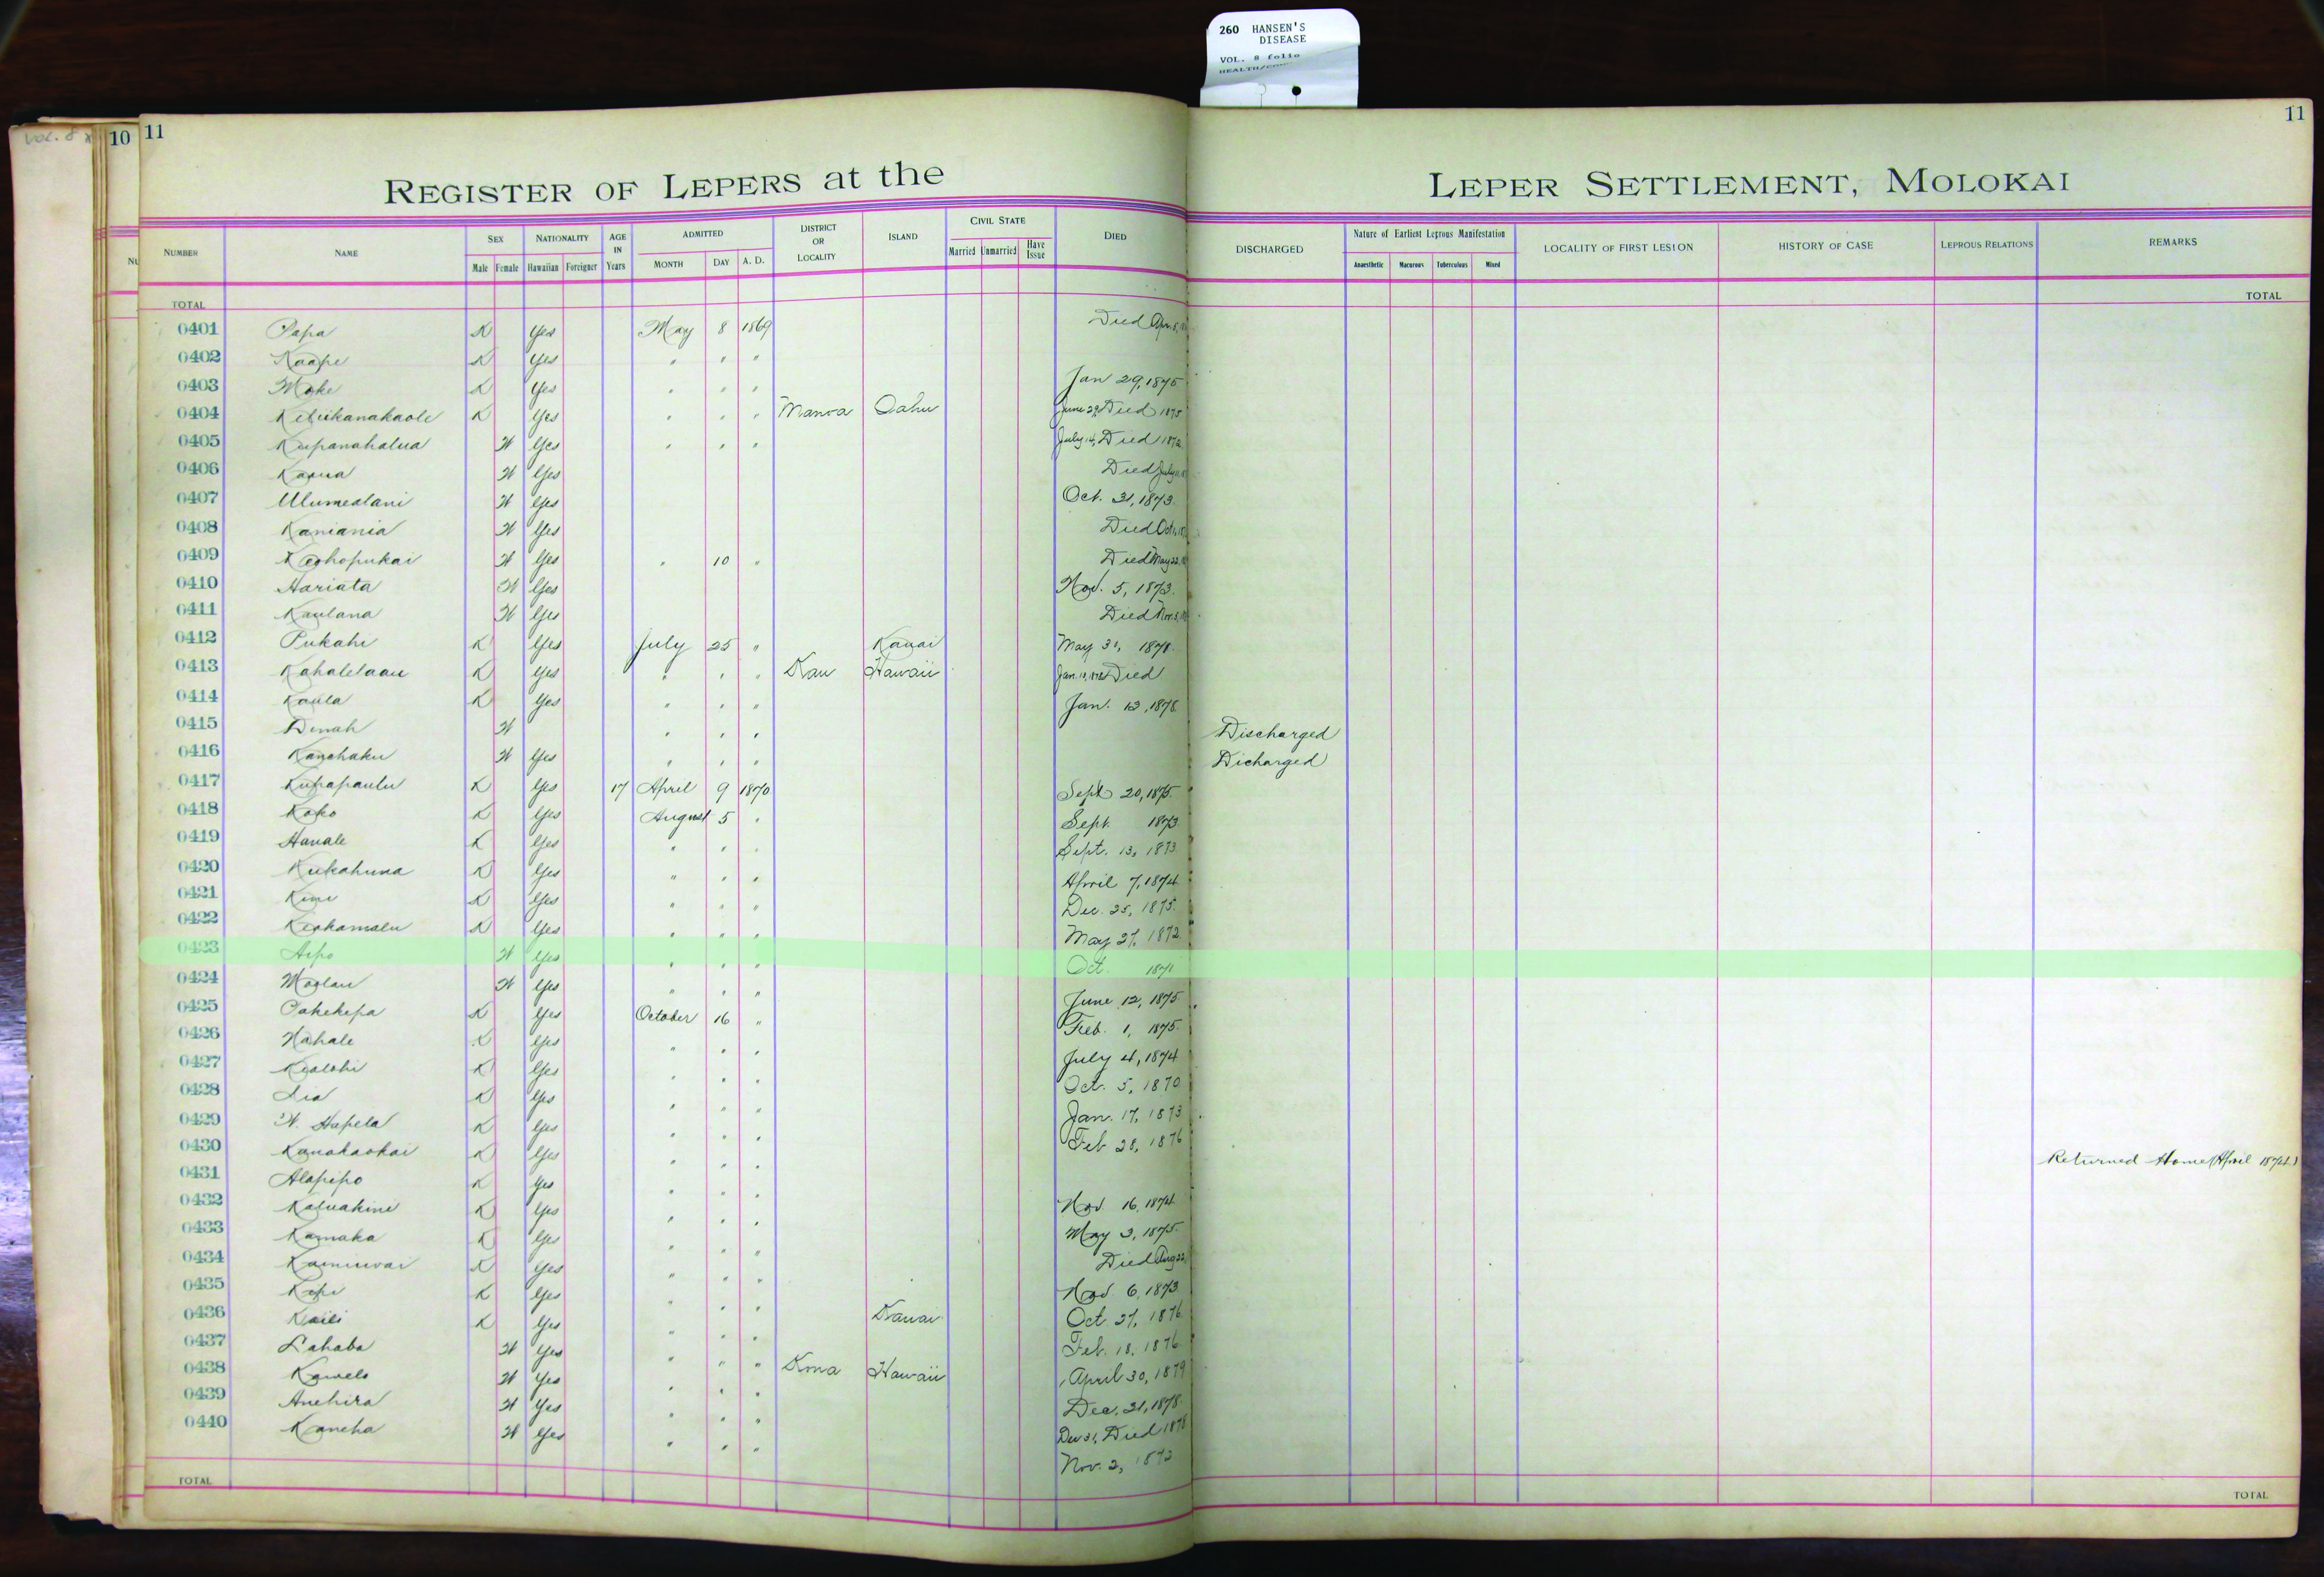 260 HANSEN'S
DISEASE
VOL. 8 folio
VOL. 8
10 11
11
REGISTER OF LEPERS at the LEPER SETTLEMENT, MOLOKAI
NUMBER NAME SEX NATIONALITY AGE IN Years ADMITTED DISTRICT OR LOCALITY ISLAND CIVIL STATE DIED DISCHARGED Nature of Earliest Leprous Manifestation LOCALITY OF FIRST LESION HISTORY OF CASE LEPROUS RELATIONS REMARKS
Male Female Hawaiian Foreigner MONTH DAY A. D. Married Unmarried Have Issue Anaesthetic Macurous Tuberculous Mixed
TOTAL TOTAL
0401 Papa K Yes May 8 1869 Died Apr. 8,
0402 Kaape K Yes " " "
0403 Moke K Yes " " " Jan 29, 1875
0404 Keliikanakaole K Yes " " " Manoa Oahu June 29, Died 1875
0405 Kupanahalua W Yes " " " July 14, Died 1872
0406 Kaaua W Yes Died July
0407 Ulumealani W Yes Oct. 31, 1873.
0408 Kaniania W Yes Died Oct.
0409 Keohopukai W Yes " 10 " Died May 22,
0410 Hariata W Yes Nov. 5, 1873.
0411 Kaulana W Yes Died Nov. 3,
0412 Pukahi K Yes July 25 " Kauai May 31, 1878.
0413 Kahalelaau K Yes " " " Kau Hawaii Jan. Died
0414 Kaula K Yes " " " Jan. 13, 1878.
0415 Dinah W " " " Discharged
0416 Kanohaku W Yes " " " Dicharged
0417 Kupapaulu K Yes 17 April 9 1870 Sept 20, 1875.
0418 Koko K Yes August 5 " Sept. 1873
0419 Hanale K Yes " " " Sept. 13, 1873
0420 Kukahuna K Yes " " " April 7, 1874
0421 Kini K Yes " " " Dec. 25, 1875.
0422 Keakamalu K Yes " " " May 27, 1872.
0423 Aipo W Yes " " " Oct. 1871
0424 Moolau W Yes " " " June 12, 1875
0425 Pakekepa K Yes October 16 " Feb. 1, 1875.
0426 Nahale K Yes " " " July 4, 1874
0427 Kealohi K Yes " " " Oct. 5, 1870
0428 Lia K Yes " " " Jan. 17, 1873
0429 W. Hapela K Yes " " " Feb 28, 1876
0430 Kanakaokai K Yes " " " Returned Home (April 1874.)
0431 Alapipo K Yes " " " Nov 16, 1874
0432 Kaluakini K Yes " " " May 3, 1875.
0433 Kamaka K Yes " " " Died Aug 22,
0434 Kaminwai K Yes " " " Nov. 6, 1873
0435 Kepi K Yes " " " Oct. 27, 1876
0436 Kaili K Yes " " " Kauai Feb. 18, 1876
0437 Lahaba W Yes " " " April 30, 1879
0438 Kawelo W Yes " " " Kona Hawaii Dec. 31, 1878.
0439 Anehira W Yes " " " Dec 31, Died 1878
0440 Kaneha W Yes " " " Nov. 2, 1872
TOTAL TOTAL